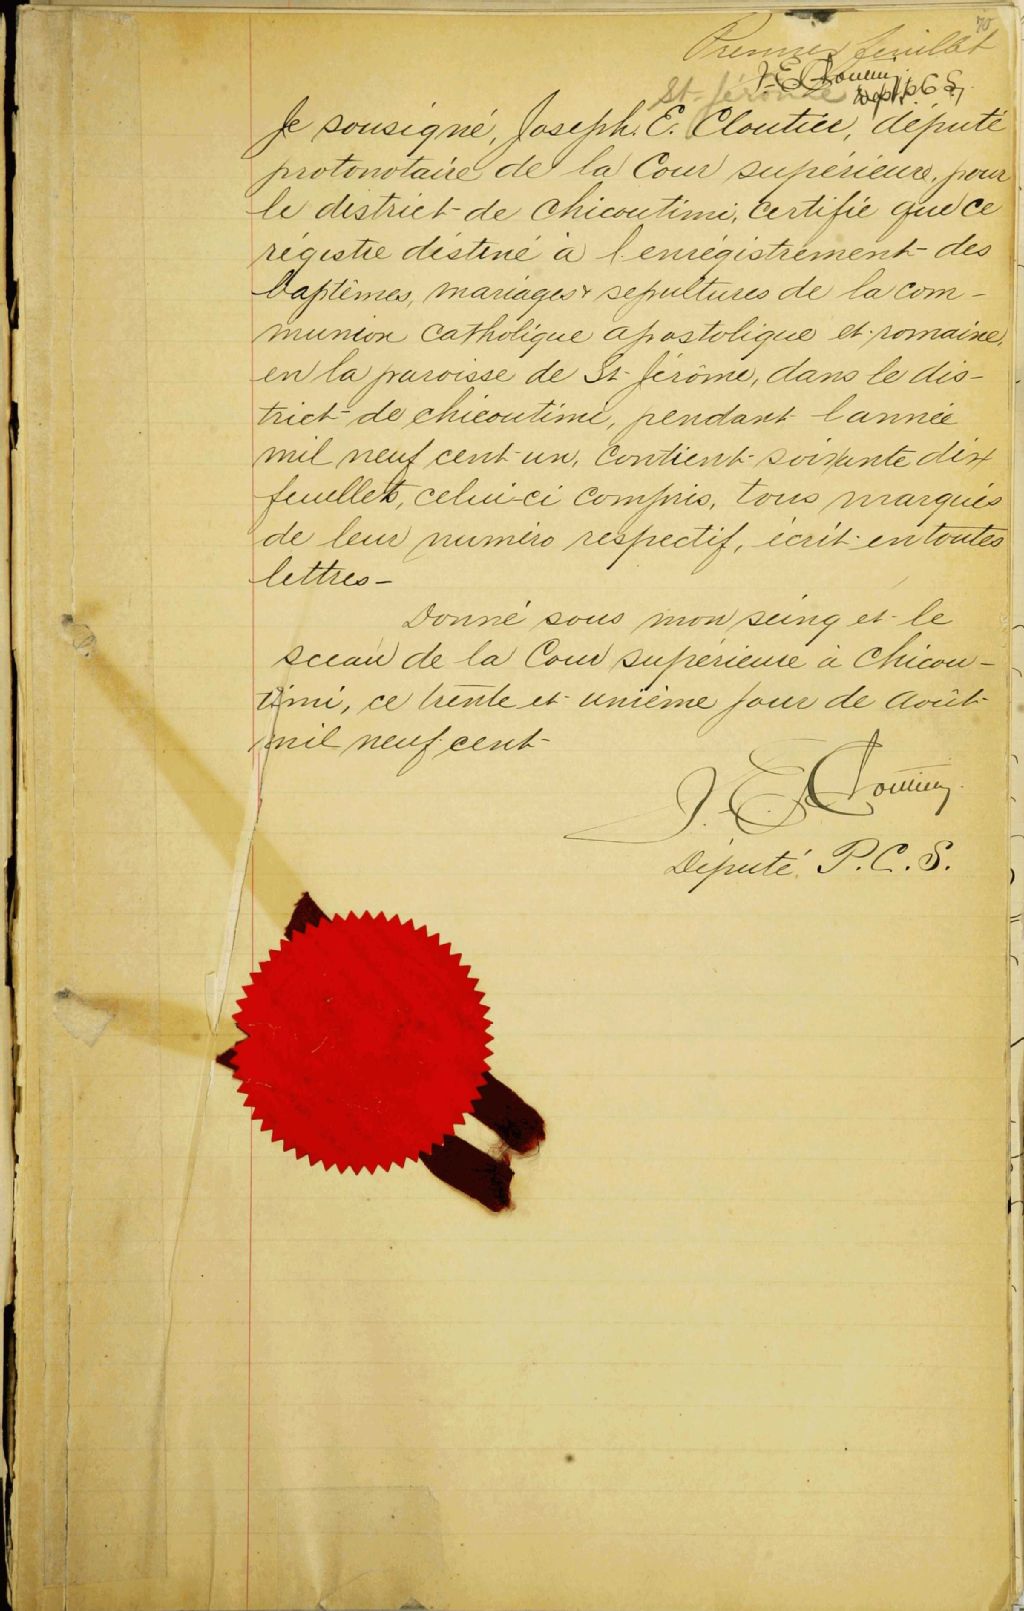 70
Premier feuillet
J. E. Cloutier
Dept. P.C.S.
St-Jérôme
Je sousigné, Joseph. E. Cloutier, député
protonotaire de la Cour supérieure, pour
le district de Chicoutimi, certifie que ce
régistre destiné à l'enrégistrement des
baptêmes, mariages & sepultures de la com-
munion Catholique apostolique et romaine,
en la paroisse de St Jérôme, dans le dis-
trict de Chicoutimi, pendant l'année
mil neuf cent un, contient soixante dix
feuillets, celui-ci compris, tous marqués
de leur numéro respectif, écrit en toutes
lettres-
Donné sous mon seing et le
sceau de la Cour supérieure à Chicou-
timi, ce trente et unième jour de Août
mil neuf cent
J. E. Cloutier
Député P.C.S.